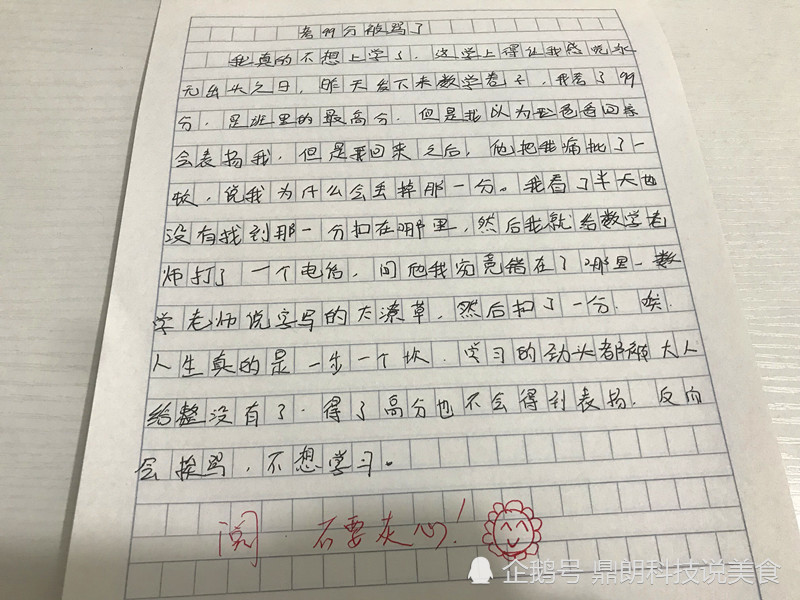 考99分被骂了
我真的不想上学了，这学上得让我感觉永
无出头之日，昨天发下来数学卷子，我考了99
分，是班里的最高分，但是我以为爸爸回来
会表扬我，但是我回来之后，他把我痛批了一
顿，说我为什么会丢掉那一分。我看了半天也
没有找到那一分扣在哪里，然后我就给数学老
师打了一个电话，问他我究竟错在了哪里，数
学老师说字写的太潦草，然后扣了一分，唉，
人生真的是一步一个坎，学习的劲头都被大人
给整没有了，得了高分也不会得到表扬，反而
会挨骂，不想学习。
阅 不要灰心！
企鹅号 鼎朗科技说美食